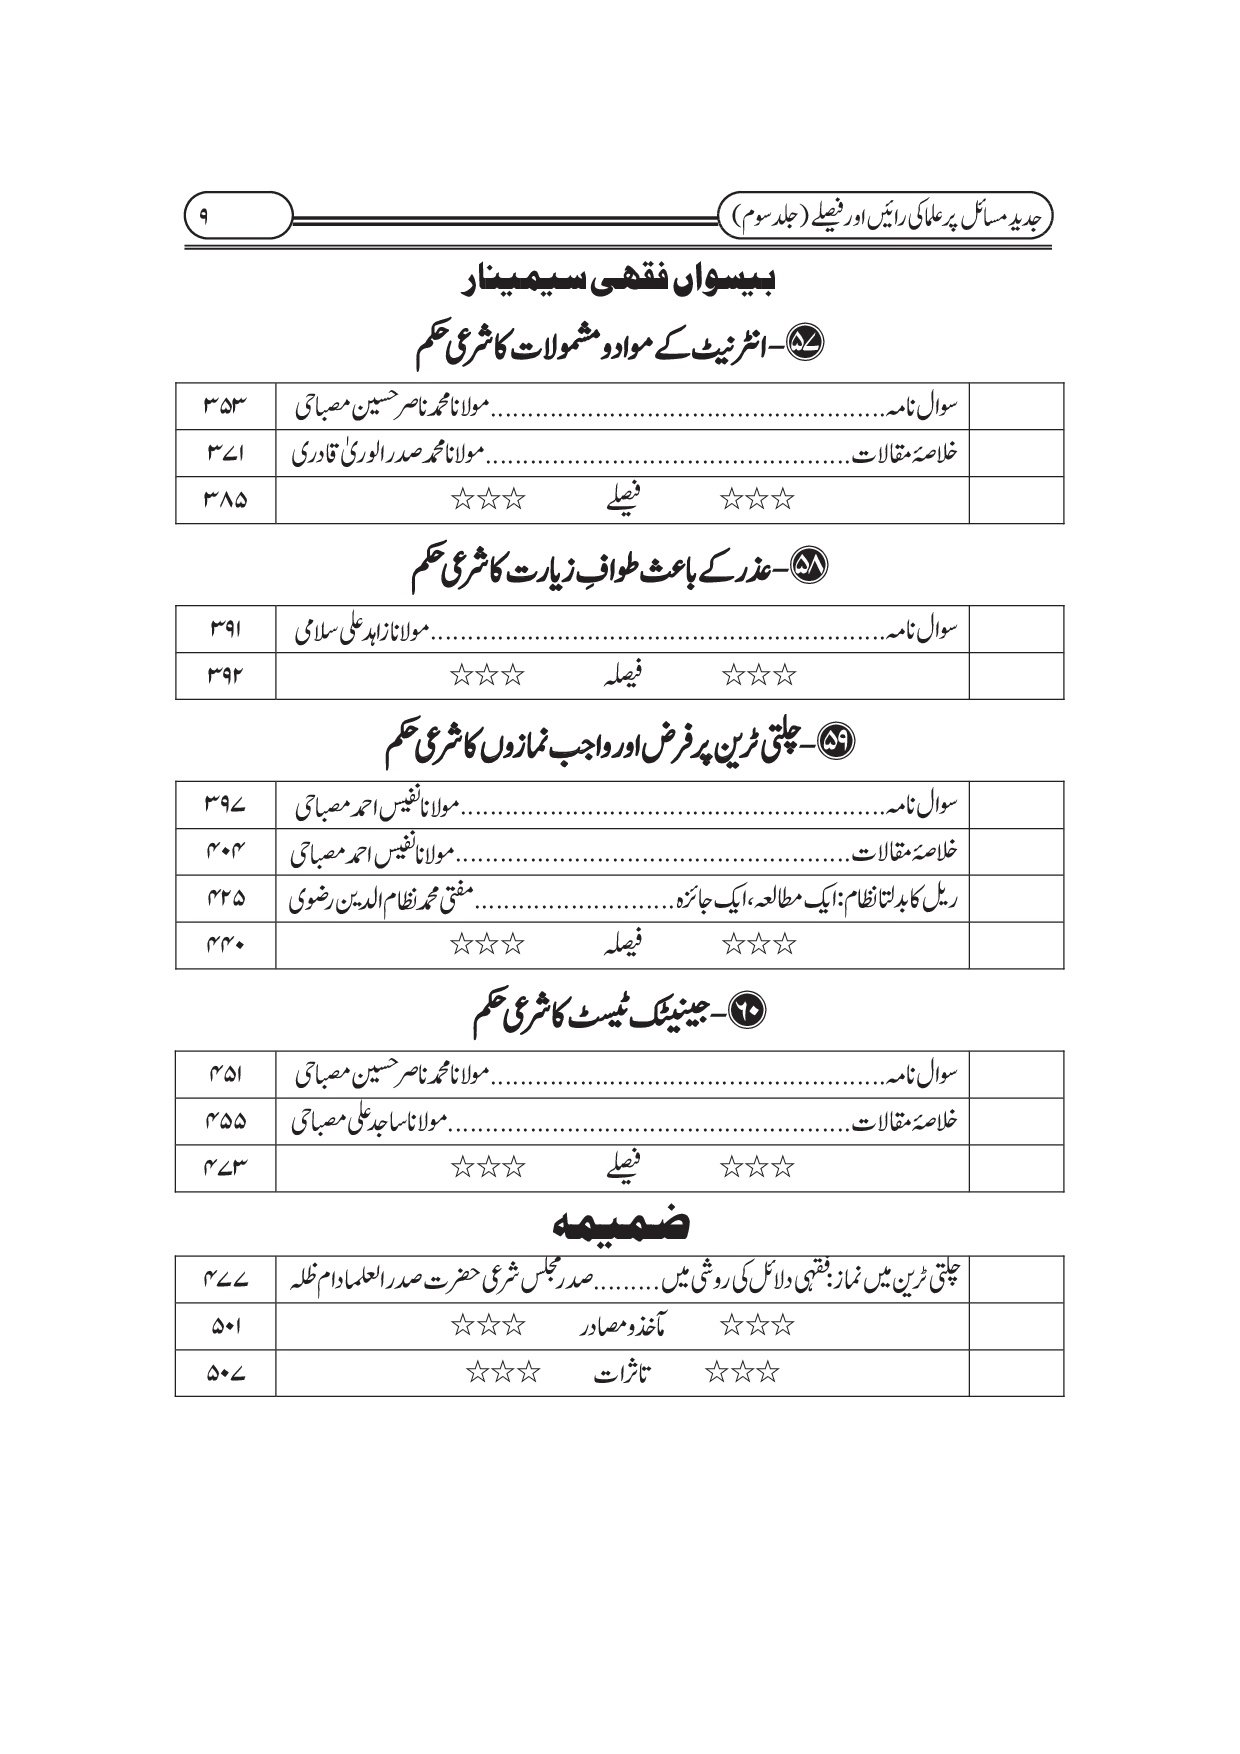 جدید مسائل پر علما کی رائیں اور فیصلے (جلد سوم) ۹
بیسواں فقهی سیمینار
۵۷-انٹرنیٹ کے مواد و مشمولات کا شرعی حکم
سوال نامہ.....................................................مولانا محمد ناصر حسین مصباحی ۳۵۳
خلاصۂ مقالات.................................................مولانا محمد صدر الوریٰ قادری ۳۷۱
☆☆☆ فیصلے ☆☆☆ ۳۸۵
۵۸-عذر کے باعث طوافِ زیارت کا شرعی حکم
سوال نامہ.............................................................مولانا زاہد علی سلامی ۳۹۱
☆☆☆ فیصلہ ☆☆☆ ۳۹۲
۵۹-چلتی ٹرین پر فرض اور واجب نمازوں کا شرعی حکم
سوال نامہ.........................................................مولانا نفیس احمد مصباحی ۳۹۷
خلاصۂ مقالات.....................................................مولانا نفیس احمد مصباحی ۴۰۴
ریل کا بدلتا نظام: ایک مطالعہ، ایک جائزہ...........................مفتی محمد نظام الدین رضوی ۴۲۵
☆☆☆ فیصلہ ☆☆☆ ۴۴۰
۶۰-جینیٹک ٹیسٹ کا شرعی حکم
سوال نامہ.....................................................مولانا محمد ناصر حسین مصباحی ۴۵۱
خلاصۂ مقالات......................................................مولانا ساجد علی مصباحی ۴۵۵
☆☆☆ فیصلے ☆☆☆ ۴۷۳
ضمیمه
چلتی ٹرین میں نماز: فقہی دلائل کی روشی میں.........صدر مجلس شرعی حضرت صدر العلما دام ظلہ ۴۷۷
☆☆☆ مآخذ و مصادر ☆☆☆ ۵۰۱
☆☆☆ تاثرات ☆☆☆ ۵۰۷